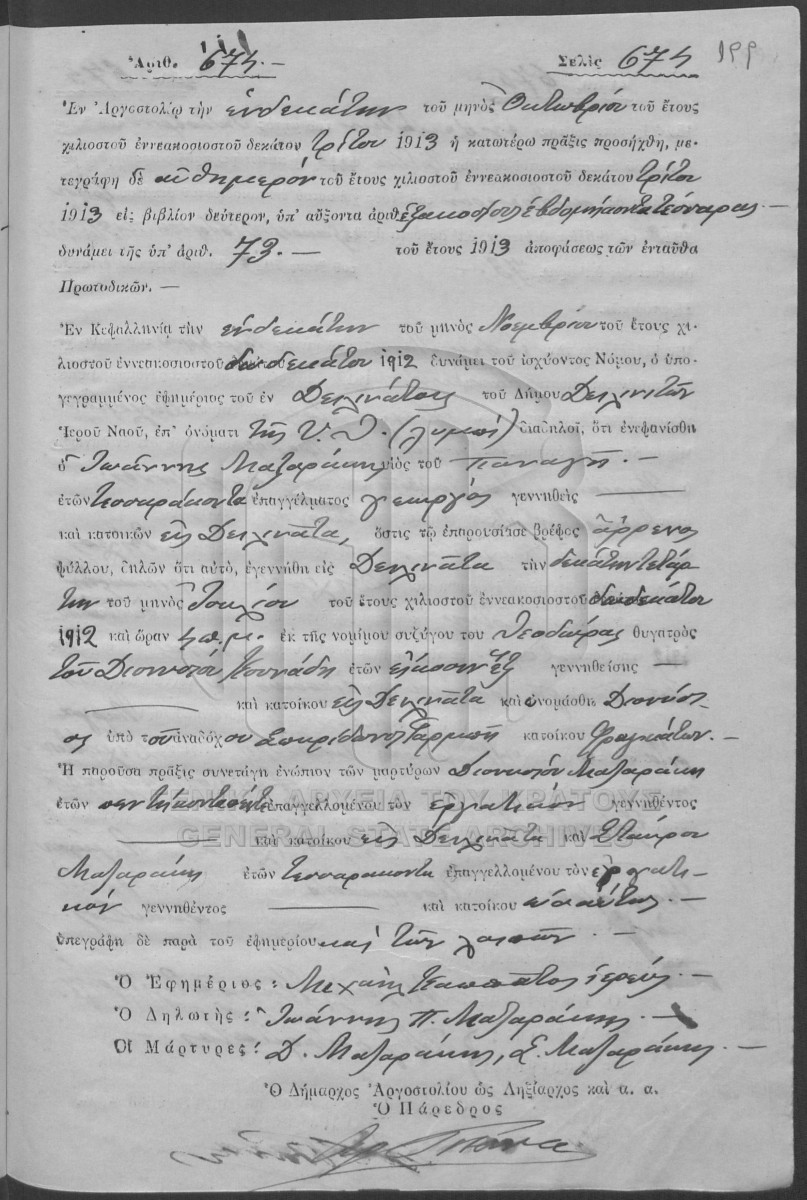 Ἀριθ. 674.— Σελὶς 674 199
Ἐν Ἀργοστολίῳ τὴν ἑνδεκάτην τοῦ μηνὸς Ὀκτωβρίου τοῦ ἔτους
χιλιοστοῦ ἐννεακοσιοστοῦ δεκάτου τρίτου 1913 ἡ κατωτέρω πρᾶξις προσήχθη, με-
τεγράφη δὲ αὐθημερόν τοῦ ἔτους χιλιοστοῦ ἐννεακοσιοστοῦ δεκάτου τρίτου
1913 εἰς βιβλίον δεύτερον, ὑπ' αὔξοντα ἀριθ. ἑξακόσια ἑβδομήκοντα τέσσαρας.—
δυνάμει τῆς ὑπ' ἀριθ. 73.— τοῦ ἔτους 1913 ἀποφάσεως τῶν ἐνταῦθα
Πρωτοδικῶν.—
Ἐν Κεφαλληνίᾳ τὴν ἑνδεκάτην τοῦ μηνὸς Νοεμβρίου τοῦ ἔτους χι-
λιοστοῦ ἐννεακοσιοστοῦ δωδεκάτου 1912 δυνάμει τοῦ ἰσχύοντος Νόμου, ὁ ὑπο-
γεγραμμένος ἐφημέριος τοῦ ἐν Δειλινάτοις τοῦ Δήμου Δειλινατῶν
Ἱεροῦ Ναοῦ, ἐπ' ὀνόματι τῆς Υ. Θ. διαδηλοῖ, ὅτι ἐνεφανίσθη
ὁ Ἰωάννης Μαζαράκης υἱὸς τοῦ Παναγῆ.—
ἐτῶν τεσσαράκοντα ἐπαγγέλματος γεωργός γεννηθεὶς —
καὶ κατοικῶν εἰς Δειλινᾶτα, ὅστις τῷ ἐπαρουσίασε βρέφος ἄρρενος
φύλλου, δηλῶν ὅτι αὐτὸ, ἐγεννήθη εἰς Δειλινᾶτα τὴν δεκάτην τετάρ
την τοῦ μηνὸς Ἰουλίου τοῦ ἔτους χιλιοστοῦ ἐννεακοσιοστοῦ δωδεκάτου
1912 καὶ ὥραν 4 π.μ. ἐκ τῆς νομίμου συζύγου του Θεοδώρας θυγατρὸς
τοῦ Διονυσίου ἐτῶν εἴκοσιν ἕξ γεννηθείσης —
— καὶ κατοίκου εἰς Δειλινᾶτα καὶ ὠνομάσθη Διονύσι
ος ὑπὸ τοῦ ἀναδόχου Σπυρίδωνος κατοίκου Φραγκάτων.—
Ἡ παροῦσα πρᾶξις συνετάγη ἐνώπιον τῶν μαρτύρων Διονυσίου Μαζαράκη
ἐτῶν πεντήκοντα ἐπαγγελλομένου τὸν ἐργατικόν γεννηθέντος
— καὶ κατοίκου εἰς Δειλινᾶτα καὶ Σταύρου
Μαζαράκη ἐτῶν τεσσαράκοντα ἐπαγγελλομένου τὸν ἐργατι-
κόν γεννηθέντος — καὶ κατοίκου ὡσαύτως.—
ὑπεγράφη δὲ παρὰ τοῦ ἐφημερίου καὶ τῶν λοιπῶν.—
Ὁ Ἐφημέριος: Μιχαὴλ ἱερεύς.—
Ὁ Δηλωτὴς: Ἰωάννης Π. Μαζαράκης.—
Οἱ Μάρτυρες: Δ. Μαζαράκης, Σ. Μαζαράκης.—
Ὁ Δήμαρχος Ἀργοστολίου ὡς Ληξίαρχος καὶ α. α.
Ὁ Πάρεδρος
ΓΕΝΙΚΑ ΑΡΧΕΙΑ ΤΟΥ ΚΡΑΤΟΥΣ
GENERAL STATE ARCHIVES